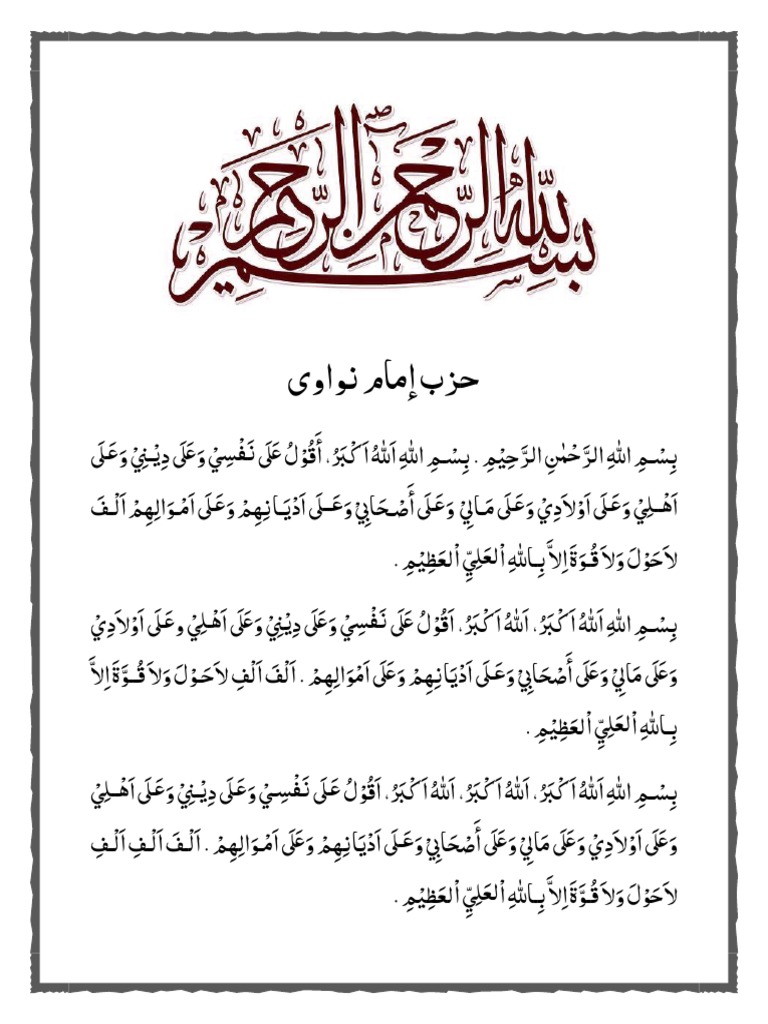 بسم الله الرحمن الرحيم
حزب إمام نواوى
بِسْمِ اللهِ الرَّحْمٰنِ الرَّحِيْمِ . بِسْمِ اللهِ اَللهُ اَكْبَرُ، أَقُوْلُ عَلَى نَفْسِيْ وَعَلَى دِيْنِيْ وَعَلَى
اَهْلِيْ وَعَلَى اَوْلاَدِيْ وَعَلَى مَالِيْ وَعَلَى أَصْحَابِيْ وَعَلَى اَدْيَانِهِمْ وَعَلَى اَمْوَالِهِمْ اَلْفَ
لاَحَوْلَ وَلاَ قُوَةَ اِلاَّ بِاللهِ اْلعَلِيِّ اْلعَظِيْمِ .
بِسْمِ اللهِ اَللهُ اَكْبَرُ، اَللهُ اَكْبَرُ، اَقُوْلُ عَلَى نَفْسِيْ وَعَلَى دِيْنِيْ وَعَلَى اَهْلِيْ وعَلَى اَوْلاَدِيْ
وَعَلَى مَالِيْ وَعَلَى أَصْحَابِيْ وَعَلَى اَدْيَانِهِمْ وَعَلَى اَمْوَالِهِمْ . اَلْفَ اَلْفِ لاَحَوْلَ وَلاَ قُوَّةَ اِلاَّ
بِاللهِ اْلعَلِيِّ اْلعَظِيْمِ .
بِسْمِ اللهِ اَللهُ اَكْبَرُ، اَللهُ اَكْبَرُ، اَللهُ اَكْبَرُ، اَقُوْلُ عَلَى نَفْسِيْ وَعَلَى دِيْنِيْ وَعَلَى اَهْلِيْ
وَعَلَى اَوْلاَدِيْ وَعَلَى مَالِيْ وَعَلَى أَصْحَابِيْ وَعَلَى اَدْيَانِهِمْ وَعَلَى اَمْوَالِهِمْ . اَلْفَ اَلْفِ اَلْفِ
لاَحَوْلَ وَلاَ قُوَّةَ اِلاَّ بِاللهِ اْلعَلِيِّ اْلعَظِيْمِ .